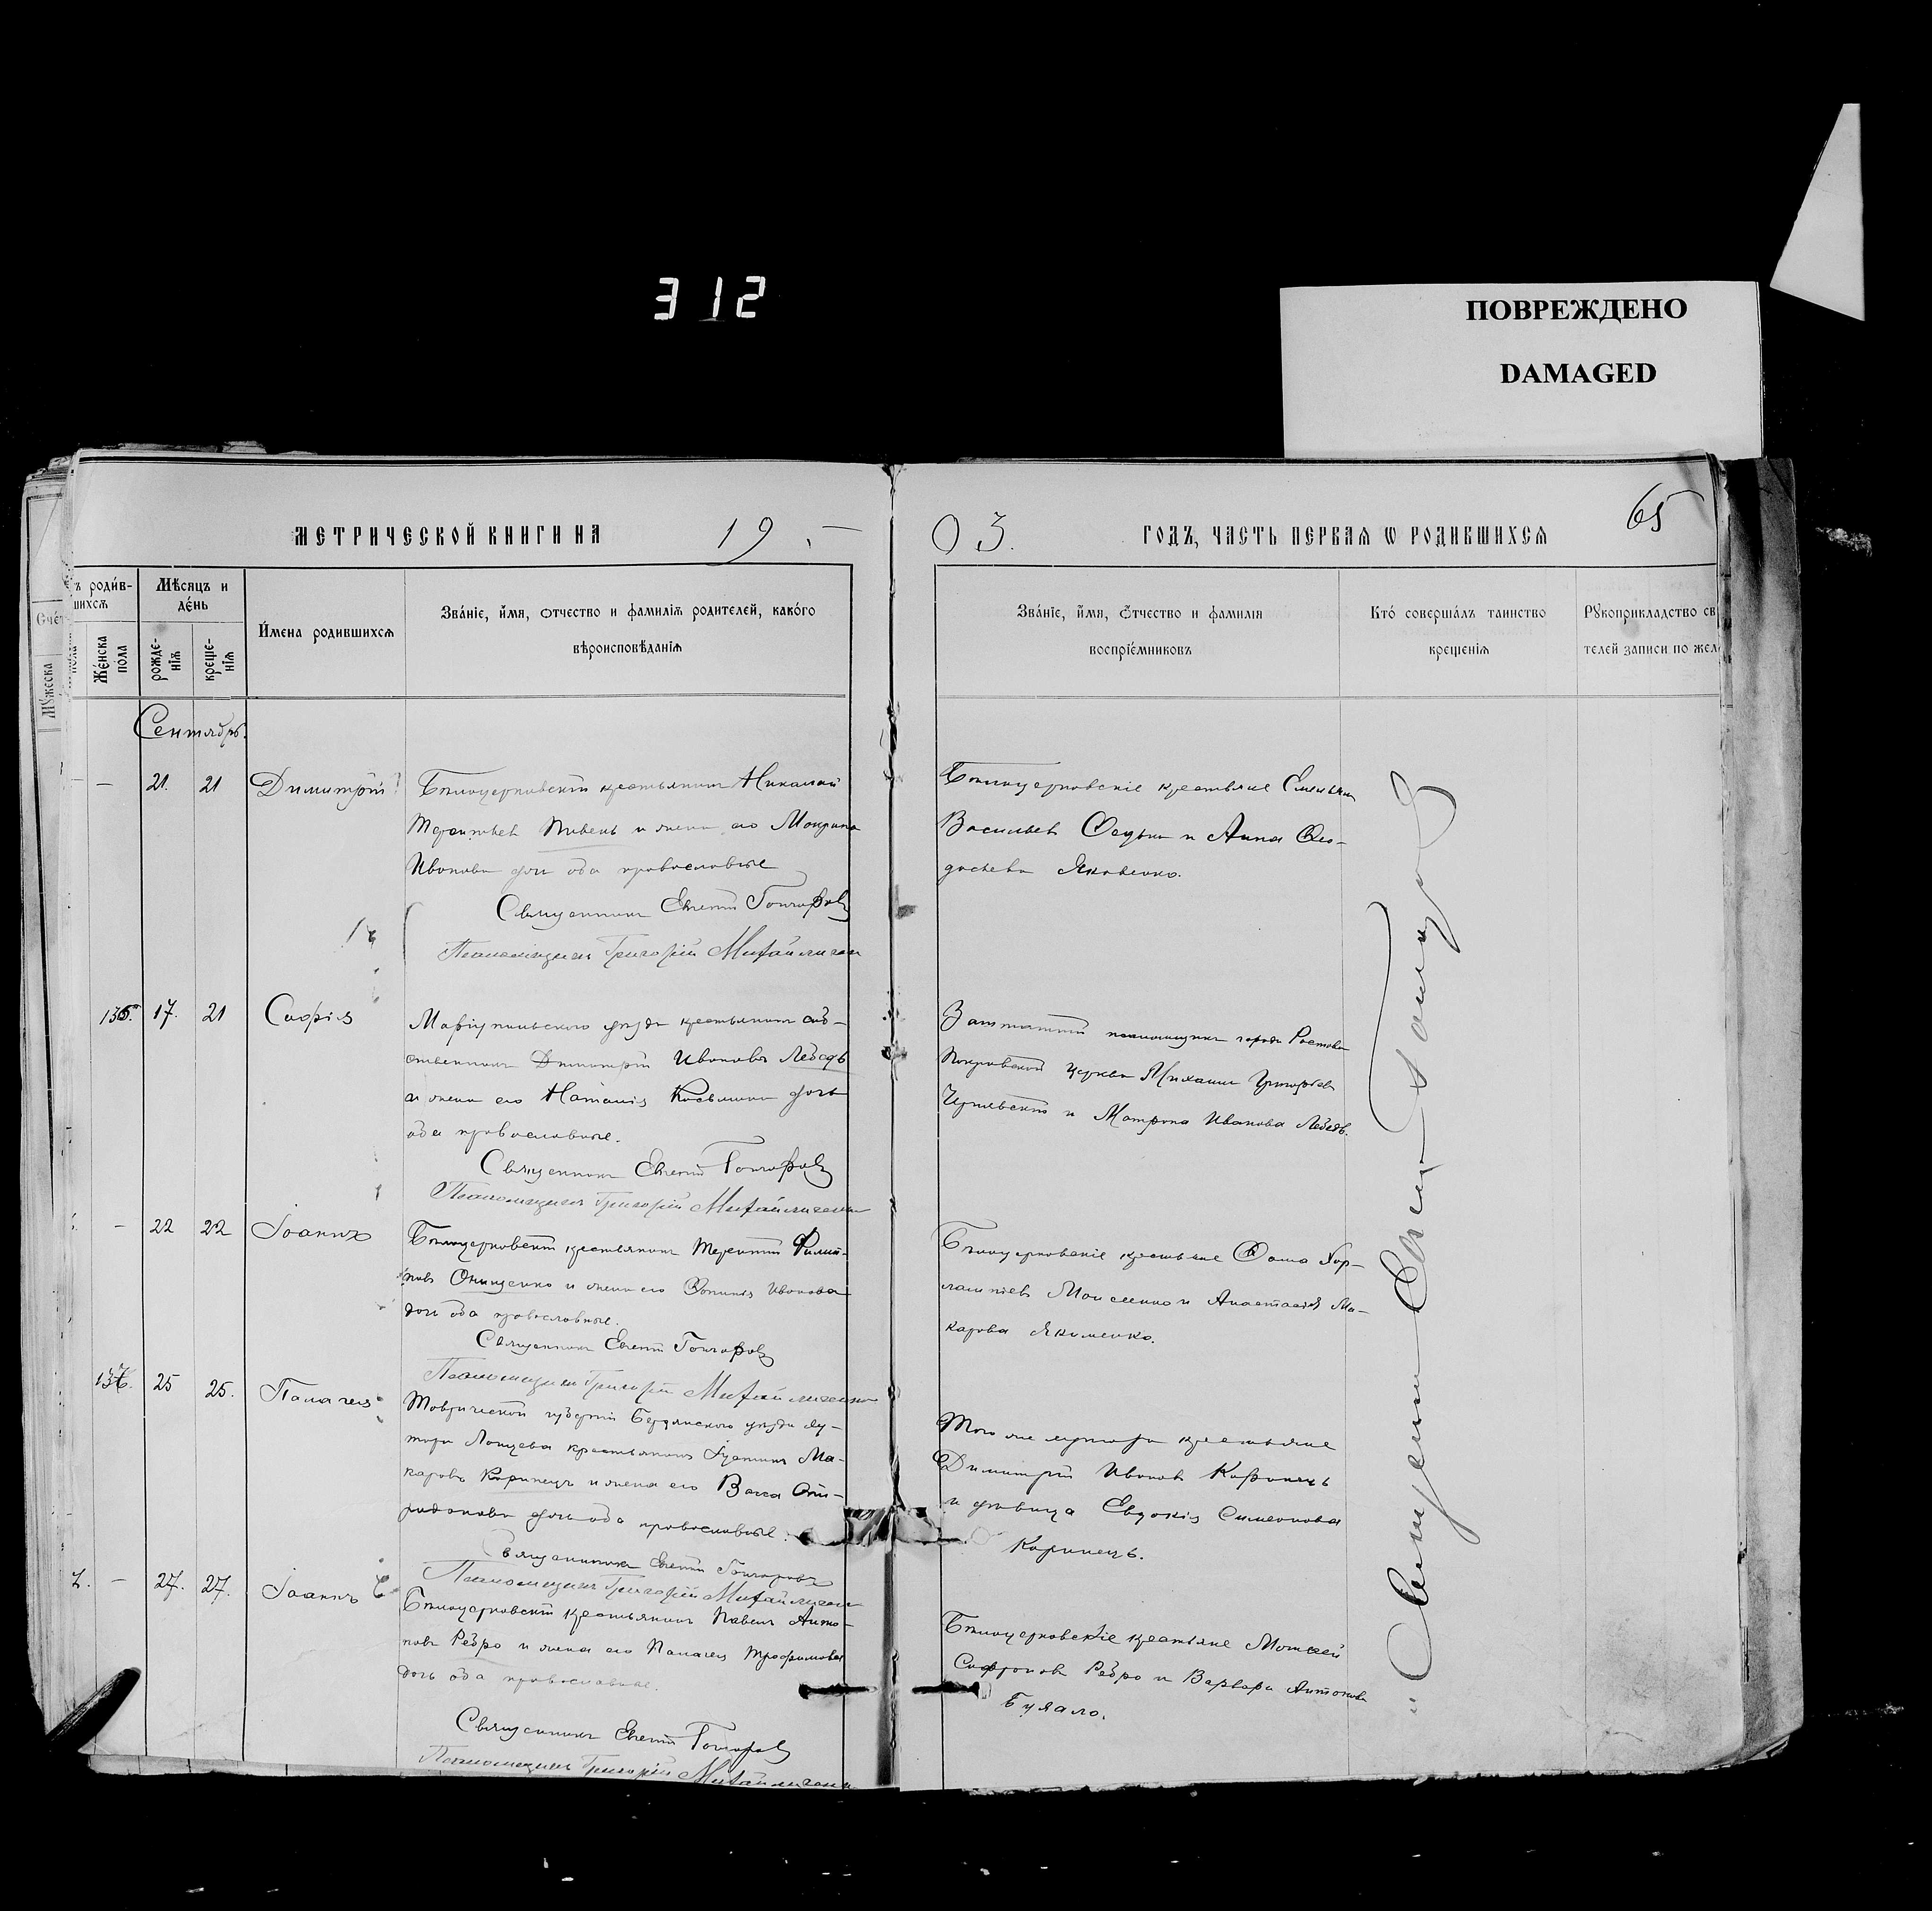 312
ПОВРЕЖДЕНО
DAMAGED
65
МЕТРИЧЕСКОЙ КНИГИ НА 19
03. ГОДЪ, ЧАСТЬ ПЕРВАЯ Ѡ РОДИВШИХСЯ
ъ роди́в-
шихся
Же́нска пола
Мѣсяцъ и
де́нь
рожде-
нія
креще-
нія
И́мена родившихся
Зва́ніе, и́мя, ѻтчество и фамилія родителей, како́го
вѣроисповѣданія
Зва́ніе, и́мя, ѻтчество и фамилія
воспріе́мниковъ
Кто́ соверша́лъ таинство
крещенія
Рꙋкоприкладство св
телей записи по жел
Мꙋжеска
Сентябрь.
— 21. 21 Димитрій
Бѣлоцерковскій крестьянинъ Николай
Терентьевъ Пивень и жена его Мокрина
Иванова оба православные
Священникъ Евгеній Гончаровъ
Псаломщикъ Григорій Михайличенко
Бѣлоцерковскіе крестьяне Емельянъ
Васильевъ и Анна Ѳео-
досьева Яковенко.
135. 17. 21 Софія
Маріупольскаго уѣзда крестьянинъ соб-
ственникъ Димитрій Ивановъ Лебедь
и жена его Наталія Косьмина
оба православные.
Священникъ Евгеній Гончаровъ
Псаломщикъ Григорій Михайличенко
Заштатный псаломщикъ города Ростова
Покровской церкви Михаилъ Григорьевъ
и Матрона Иванова Лебедь.
— 22 22 Іоаннъ
Бѣлоцерковскій крестьянинъ Терентій Филип-
повъ Онищенко и жена его Иванова
оба православные.
Священникъ Евгеній Гончаровъ
Псаломщикъ Григорій Михайличенко
Бѣлоцерковскіе крестьяне Ѳома Хар-
лампіевъ Моисеенко и Анастасія Ма-
карова Якименко.
136. 25 25. Палагея
Таврической губерніи Бердянскаго уѣзда ху-
тора крестьянинъ Іустинъ Ма-
каровъ Коринецъ и жена его Васса Спи-
ридонова оба православные.
Священникъ Евгеній Гончаровъ
Псаломщикъ Григорій Михайличенко
Того же хутора крестьяне
Димитрій Ивановъ Коринецъ
и дѣвица Евдокія Симеонова
Коринецъ.
— 27. 27. Іоаннъ
Бѣлоцерковскій крестьянинъ Павелъ Анто-
новъ Ребро и жена его Палагея Трофимова
оба православные.
Священникъ Евгеній Гончаровъ
Псаломщикъ Григорій Михайличенко
Бѣлоцерковскіе крестьяне Моисей
Софроновъ Ребро и Варвара Антонова